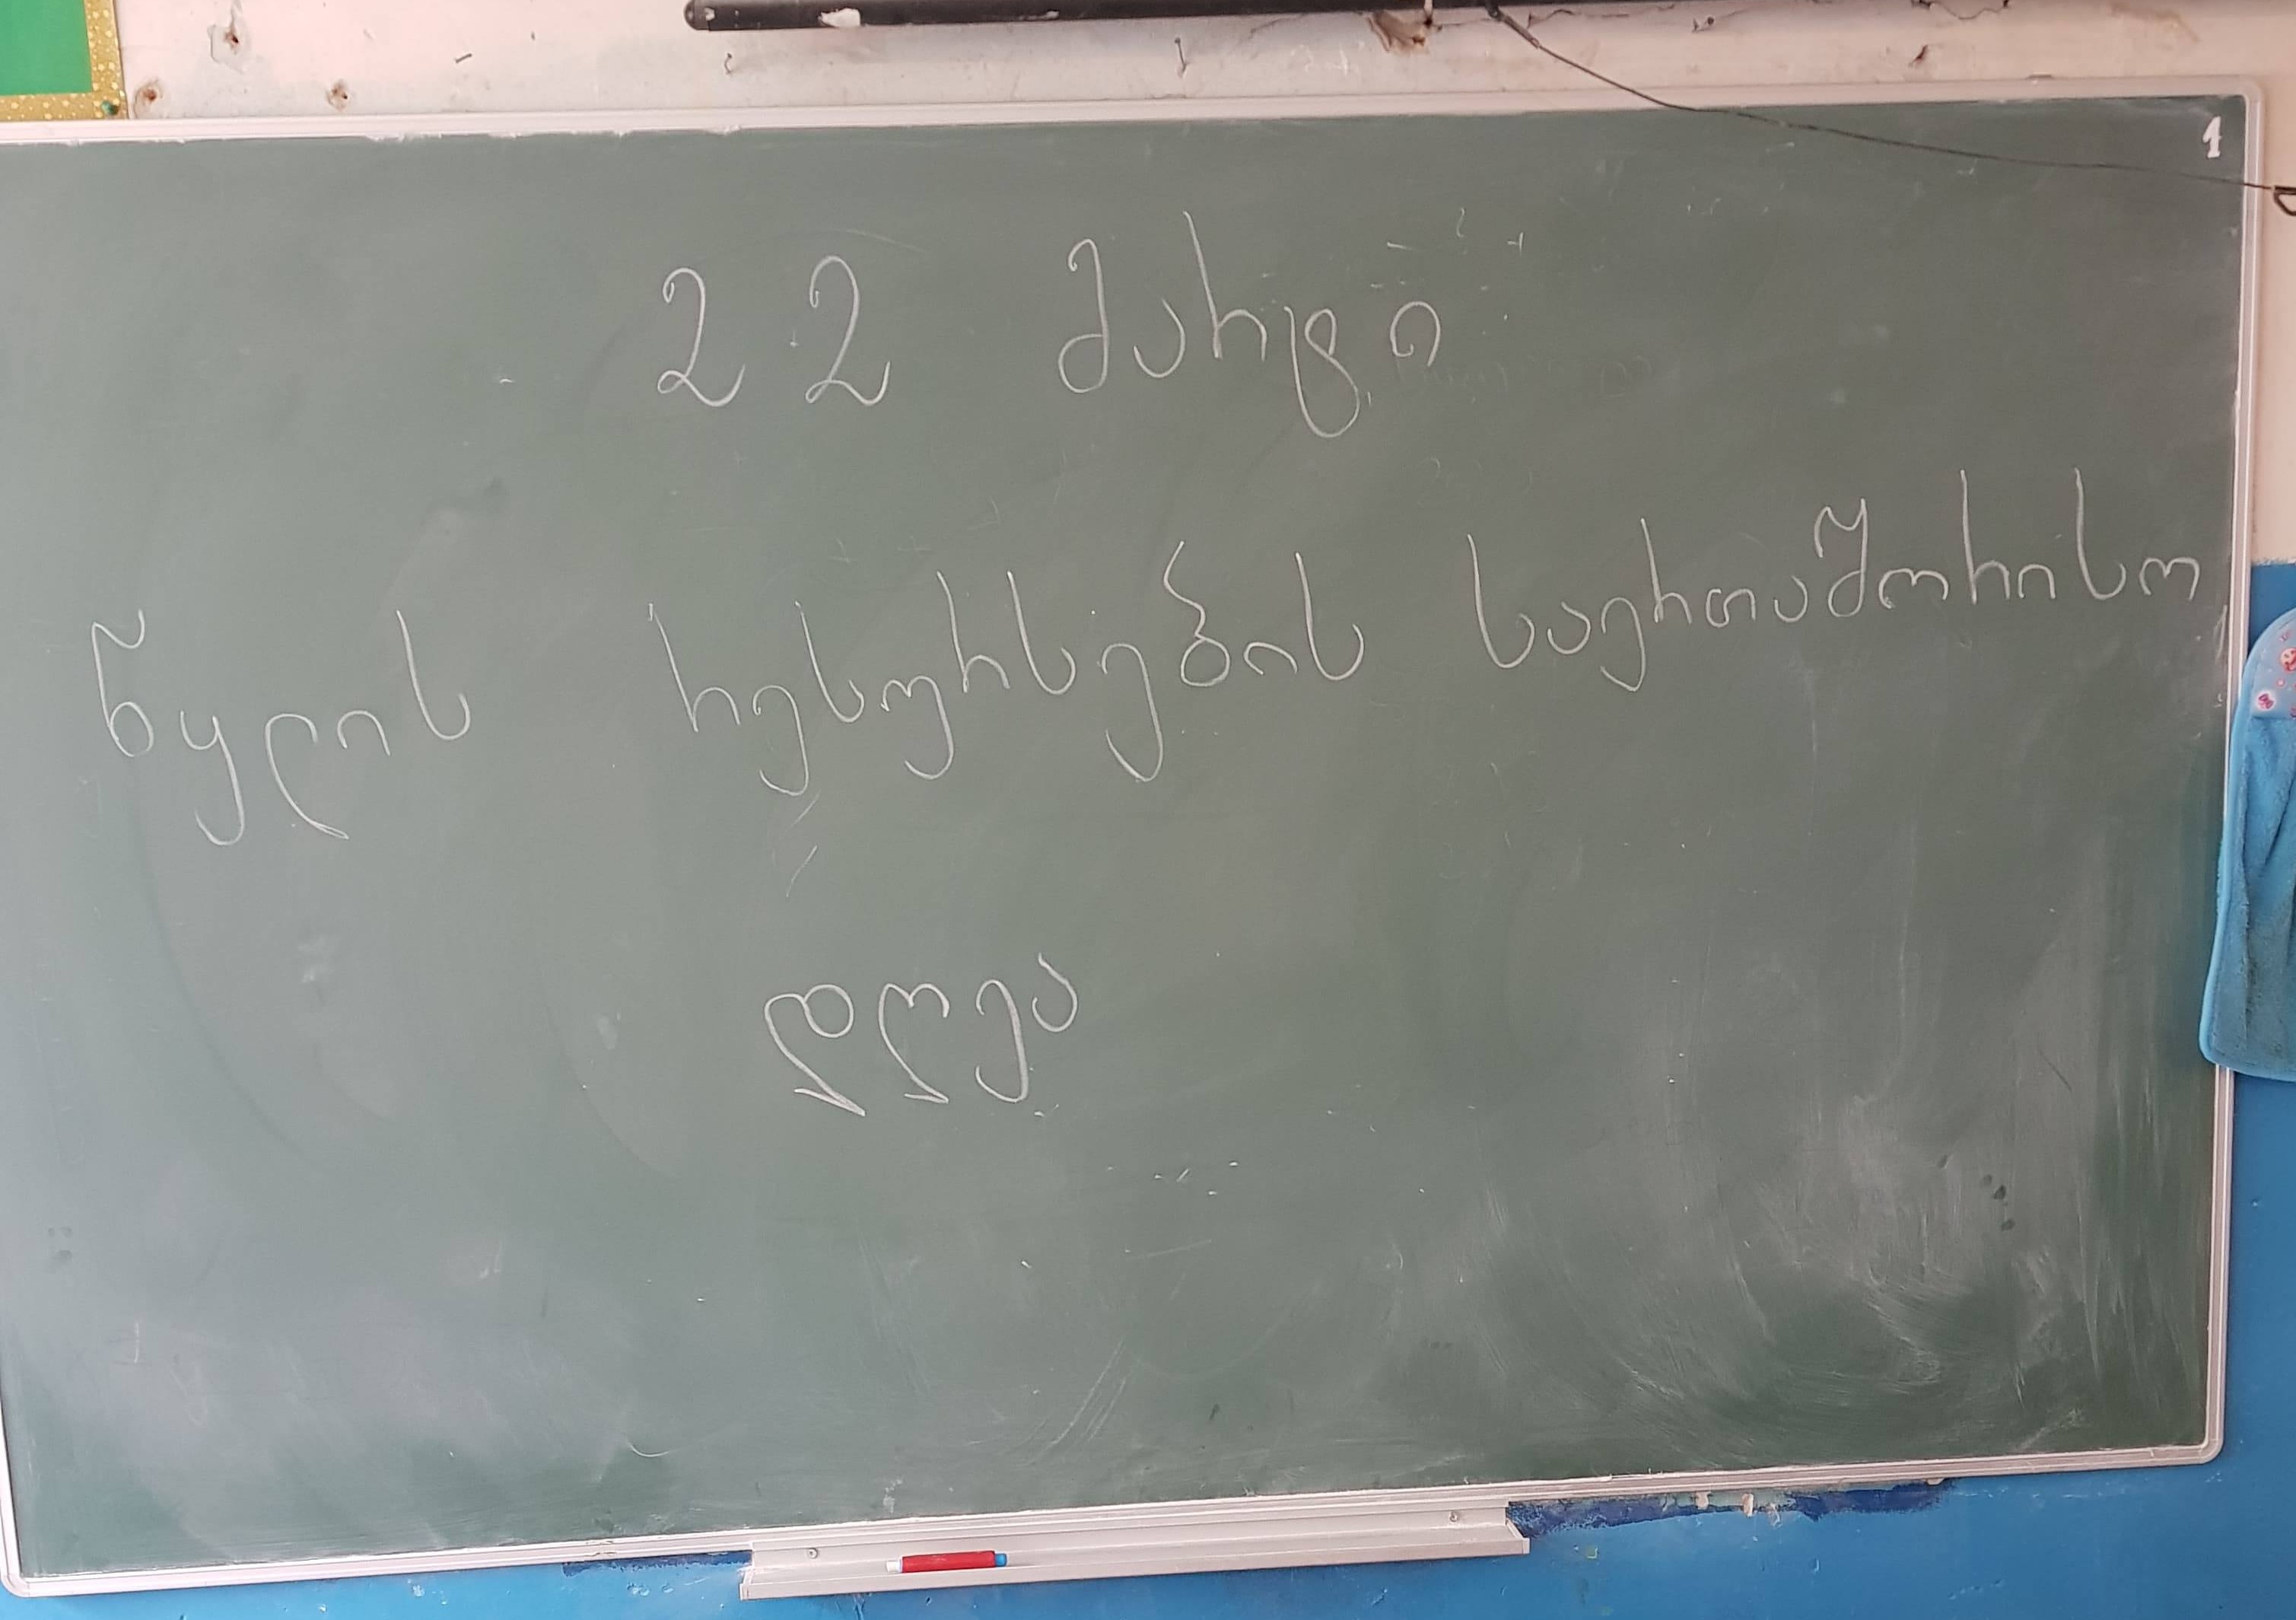 1
22 მარტი
წყლის რესურსების საერთაშორისო
დღეა